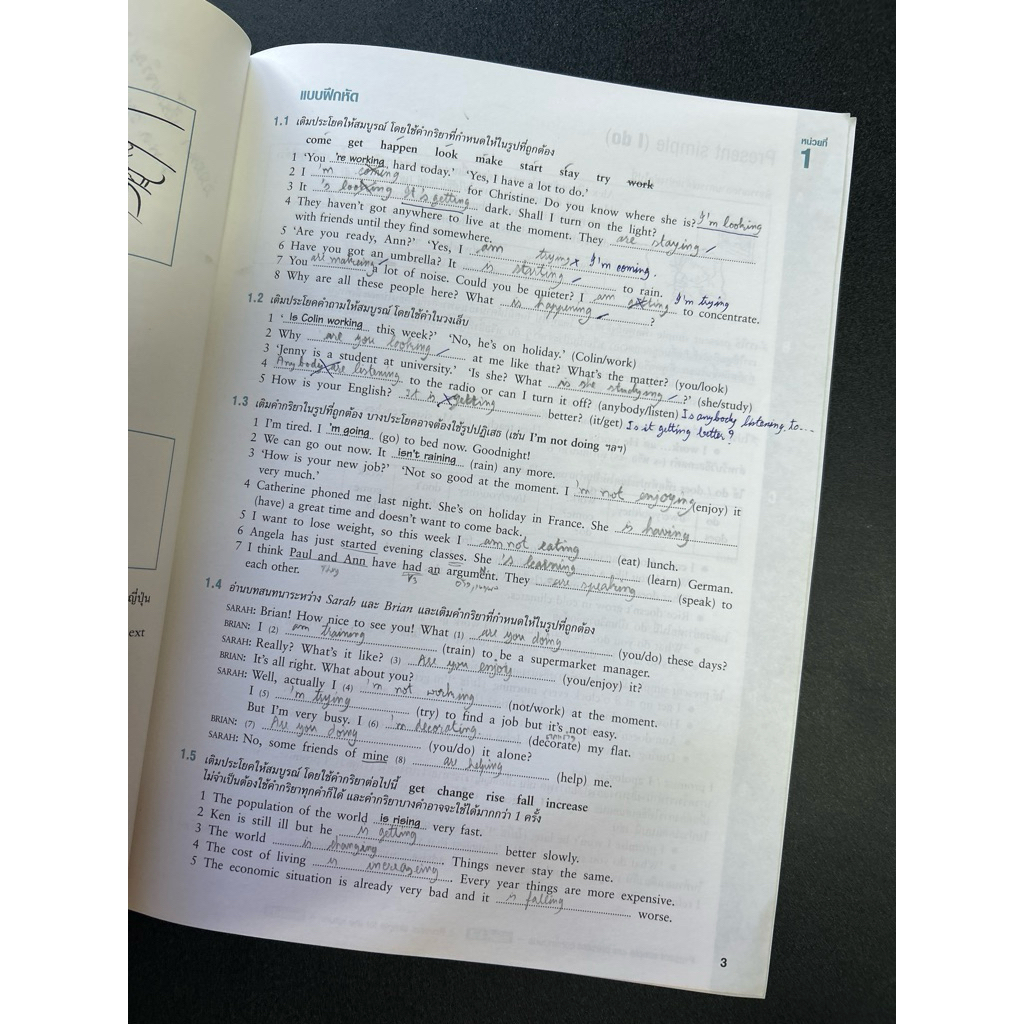 แบบฝึกหัด
หน่วยที่
1
1.1 เติมประโยคให้สมบูรณ์ โดยใช้คำกริยาที่กำหนดให้ในรูปที่ถูกต้อง
come get happen look make start stay try work
1 'You 're working hard today.' 'Yes, I have a lot to do.'
2 I 'm coming for Christine. Do you know where she is? I'm looking
3 It 's looking It's getting dark. Shall I turn on the light?
4 They haven't got anywhere to live at the moment. They are staying
with friends until they find somewhere.
5 'Are you ready, Ann?' 'Yes, I am trying I'm coming.
6 Have you got an umbrella? It is starting to rain.
7 You are making a lot of noise. Could you be quieter? I am getting to concentrate. I'm trying
8 Why are all these people here? What is happening ?
1.2 เติมประโยคคำถามให้สมบูรณ์ โดยใช้คำในวงเล็บ
1 ' is Colin working this week?' 'No, he's on holiday.' (Colin/work)
2 Why are you looking at me like that? What's the matter? (you/look)
3 'Jenny is a student at university.' 'Is she? What is she studying ?' (she/study)
4 Anybody are listening to the radio or can I turn it off? (anybody/listen) Is anybody listening to...
5 How is your English? It is getting better? (it/get) Is it getting better?
1.3 เติมคำกริยาในรูปที่ถูกต้อง บางประโยคอาจต้องใช้รูปปฏิเสธ (เช่น I'm not doing ฯลฯ)
1 I'm tired. I 'm going (go) to bed now. Goodnight!
2 We can go out now. It isn't raining (rain) any more.
3 'How is your new job?' 'Not so good at the moment. I 'm not enjoying (enjoy) it
very much.'
4 Catherine phoned me last night. She's on holiday in France. She is having
(have) a great time and doesn't want to come back.
5 I want to lose weight, so this week I am not eating (eat) lunch.
6 Angela has just started evening classes. She 's learning (learn) German.
7 I think Paul and Ann have had an argument. They are speaking (speak) to
They V3
each other.
1.4 อ่านบทสนทนาระหว่าง Sarah และ Brian และเติมคำกริยาที่กำหนดให้ในรูปที่ถูกต้อง
SARAH: Brian! How nice to see you! What (1) are you doing (you/do) these days?
BRIAN: I (2) am training (train) to be a supermarket manager.
SARAH: Really? What's it like? (3) Are you enjoy (you/enjoy) it?
BRIAN: It's all right. What about you?
SARAH: Well, actually I (4) 'm not working (not/work) at the moment.
I (5) 'm trying (try) to find a job but it's not easy.
But I'm very busy. I (6) 'm decorating (decorate) my flat.
BRIAN: (7) Are you doing (you/do) it alone?
SARAH: No, some friends of mine (8) are helping (help) me.
1.5 เติมประโยคให้สมบูรณ์ โดยใช้คำกริยาต่อไปนี้ get change rise fall increase
ไม่จำเป็นต้องใช้คำกริยาทุกคำก็ได้ และคำกริยาบางคำอาจจะใช้ได้มากกว่า 1 ครั้ง
1 The population of the world is rising very fast.
2 Ken is still ill but he is getting better slowly.
3 The world is changing . Things never stay the same.
4 The cost of living is increaseing . Every year things are more expensive.
5 The economic situation is already very bad and it is falling worse.
3
ญี่ปุ่น
ext